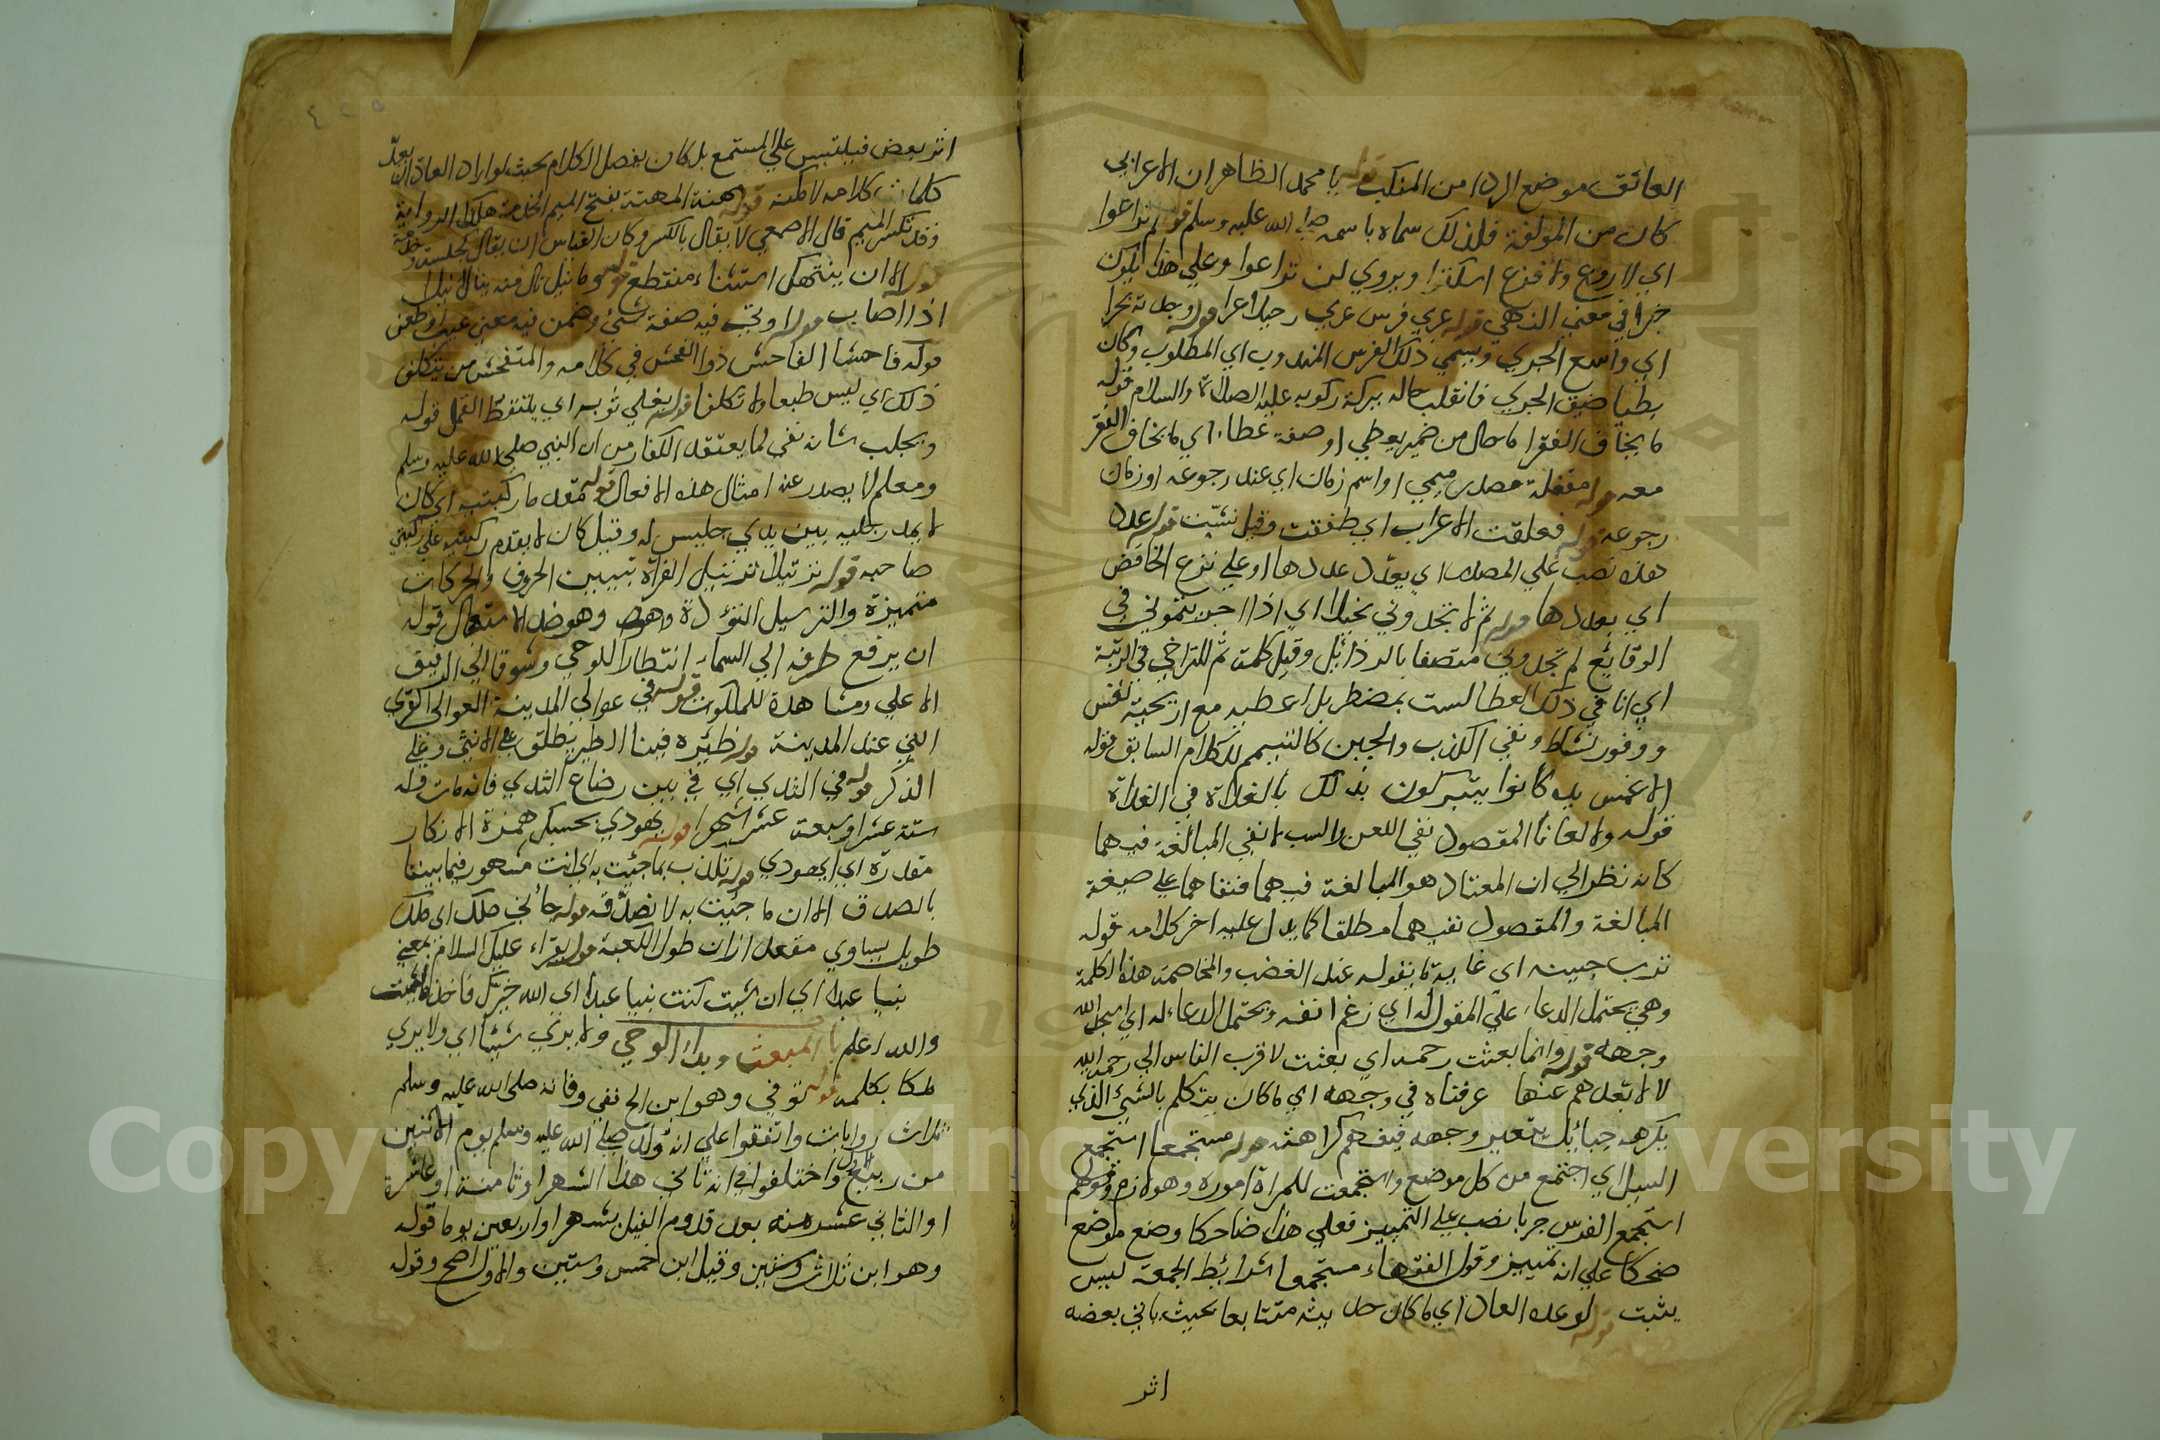 العاتق موضع الردا من المنكب قوله يا محمد الظاهر ان الاعرابي
كان من المؤلفة فلذلك سماه باسمه صلي الله عليه وسلم قوله لم تراعوا
اي لا روع ولا فزع اسكنوا ويروي لن تراعوا وعلي هذا يكون
خبرا في معني النهي قوله عري فرس عري رحيل اعرا قوله وجدته بحرا
اي واسع الجري ويسمي ذلك الفرس المندوب اي المطلوب وكان
بطيا ضيق الجري فانقلب حاله ببركة ركوبه عليه الصلاة والسلام قوله
ما يخاف الفقر اما حال من ضمير يعطي او صفة عطا اي ما يخاف الفقر
معه قوله مقفلة مصدر ميمي او اسم زمان اي عند رجوعه او زمان
رجوعه قوله فعلقت الاعراب اي طفقت وقيل نشبت قوله عدد
هذه نصب علي المصدر اي يعدد عددها او علي نزع الخافض
اي بعددها قوله ثم لا تجدوني بخيلا اي اذا جربتموني في
الوقايع لم تجدوني متصفا بالرذائل وقيل كلمة ثم للتراخي في الرتبة
اي انا في ذلك العطا لست بمضطر بل اعطيه مع اريحية نفس
ووفور نشاط ونفي الكذب والجبن كالتتميم للكلام السابق قوله
الا غمس يده كانوا يتبركون بذلك بالغداة في الغداة
قوله ولا لعانا المقصود نفي اللعن والسب لا نفي المبالغة فيهما
كانه نظر الي ان المعتاد هو المبالغة فيهما فنفاهما علي صيغة
المبالغة والمقصود نفيهما مطلقا كما يدل عليه اخر كلامه قوله
ترب جبينه اي غاية ما يقوله عند الغضب والمخاصمة هذه الكلمة
وهي يحتمل الدعاء علي المقول له اي رغم انفه ويحتمل الدعاء له اي سجد لله
وجهه قوله وانما بعثت رحمة اي بعثت لاقرب الناس الي رحمة الله
لا لابعدهم عنها عرفناه في وجهه اي ما كان يتكلم بالشيء الذي
يكرهه حياء بل يتغير وجهه فيفهم كراهته قوله مستجمعا استجمع
السيل اي اجتمع من كل موضع واستجمعت للمراة اموره وهو لازم وقولهم
استجمع الفرس جريا نصب علي التمييز فعلي هذا ضاحكا وضع موضع
ضحكا علي انه تمييز وقول الفقهاء مستجمعا شرائط الجمعة ليس
يثبت قوله لو عده العاد اي ما كان حديثه متتابعا بحيث ياتي بعضه
اثر
اثر بعض فيلتبس علي المستمع بل كان يفصل الكلام بحيث لو اراد العاد ان يعد
كلمات كلامه لامكنه قوله مهنة المهنة بفتح الميم الخدمة هكذا الرواية
وقد تكسر الميم قال الاصمعي لا يقال بالكسر وكان القياس ان يقال كجلسة وخدمة
قوله الا ان ينتهك استثناء منقطع قوله وما نيل نال منه ينال نيلا
اذا اصاب قوله
قوله فاحشا الفاحش ذوا الفحش في كلامه والمتفحش من يتكلف
ذلك اي ليس طبعا ولا تكلفا قوله يفلي ثوبه اي يلتقط القمل قوله
ويحلب شاته نفي لما يعتقد الكفار من ان النبي صلي الله عليه وسلم
ومعلم لا يصدر عنه امثال هذه الافعال قوله مقدما ركبتيه اي كان
لا يمد رجليه بين يدي جليس له وقيل كان لا يقدم ركبتيه علي ركبتي
صاحبه قوله ترتيل ترتيل القراة تبيين الحروف والحركات
متميزة والترسيل التؤدة وهو ضد الاستعجال قوله
ان يرفع طرفه الي السماء انتظارا للوحي وشوقا الي الرفيق
الاعلي ومشاهدة للملكوت قوله في عوالي المدينة العوالي القري
التي عند المدينة قوله ظئره قينا الظئر يطلق علي الانثي وعلي
الذكر قوله في الثدي اي في بين رضاع الثدي فانه مات وله
ستة عشر او سبعة عشر اشهرا قوله يهودي بحسبك همزة الانكار
مقدرة اي ايهودي قوله تكذب بما جئت به اي انت مشهور فيما بيننا
بالصدق الا ان ما جئت به لا نصدقه قوله جاءني ملك اي ملك
طويل يساوي مقعد ازاره طول الكعبة قوله يقراء عليك السلام بمعني
نبيا عبدا اي ان شيت كنت نبيا عبدا اي الله خيرك فاختر ما شئت
والله اعلم باب المبعث وبدا الوحي ولا يري شيئا اي ولا يري
ملكا يكلمه قوله توفي وهو ابن الخ ففي وفاته صلي الله عليه وسلم
ثلاث روايات واتفقوا علي انه ولد صلي الله عليه وسلم يوم الاثنين
من ربيع الاول واختلفوا في انه ثاني هذا الشهر او ثامنه او عاشره
او الثاني عشره منه بعد قدوم الفيل بشهر او اربعين يوما قوله
وهو ابن ثلاث وستين وقيل ابن خمس وستين والاول اصح وقوله
Copyright © King Saud University